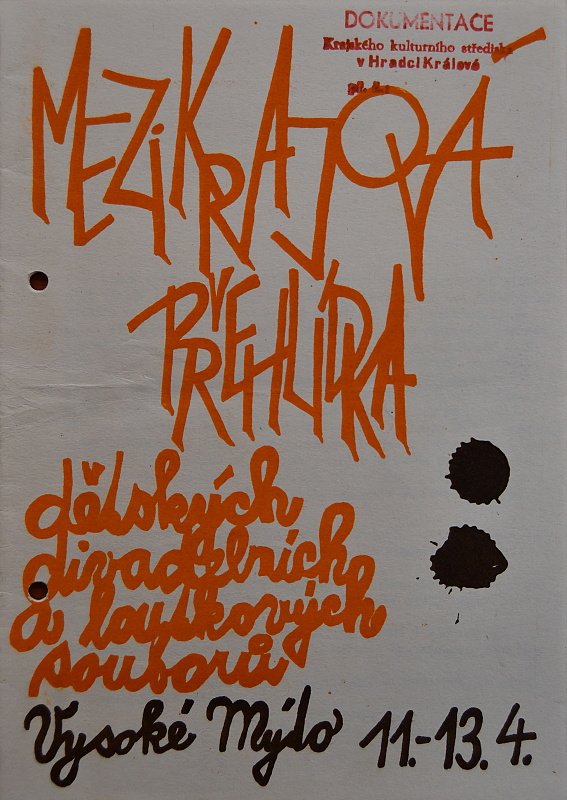 DOKUMENTACE
Krajského kulturního střediska
v Hradci Králové
MEZIKRAJOVÁ
PŘEHLÍDKA
dětských
divadelních
a loutkových
souborů
Vysoké Mýto 11.-13.4.